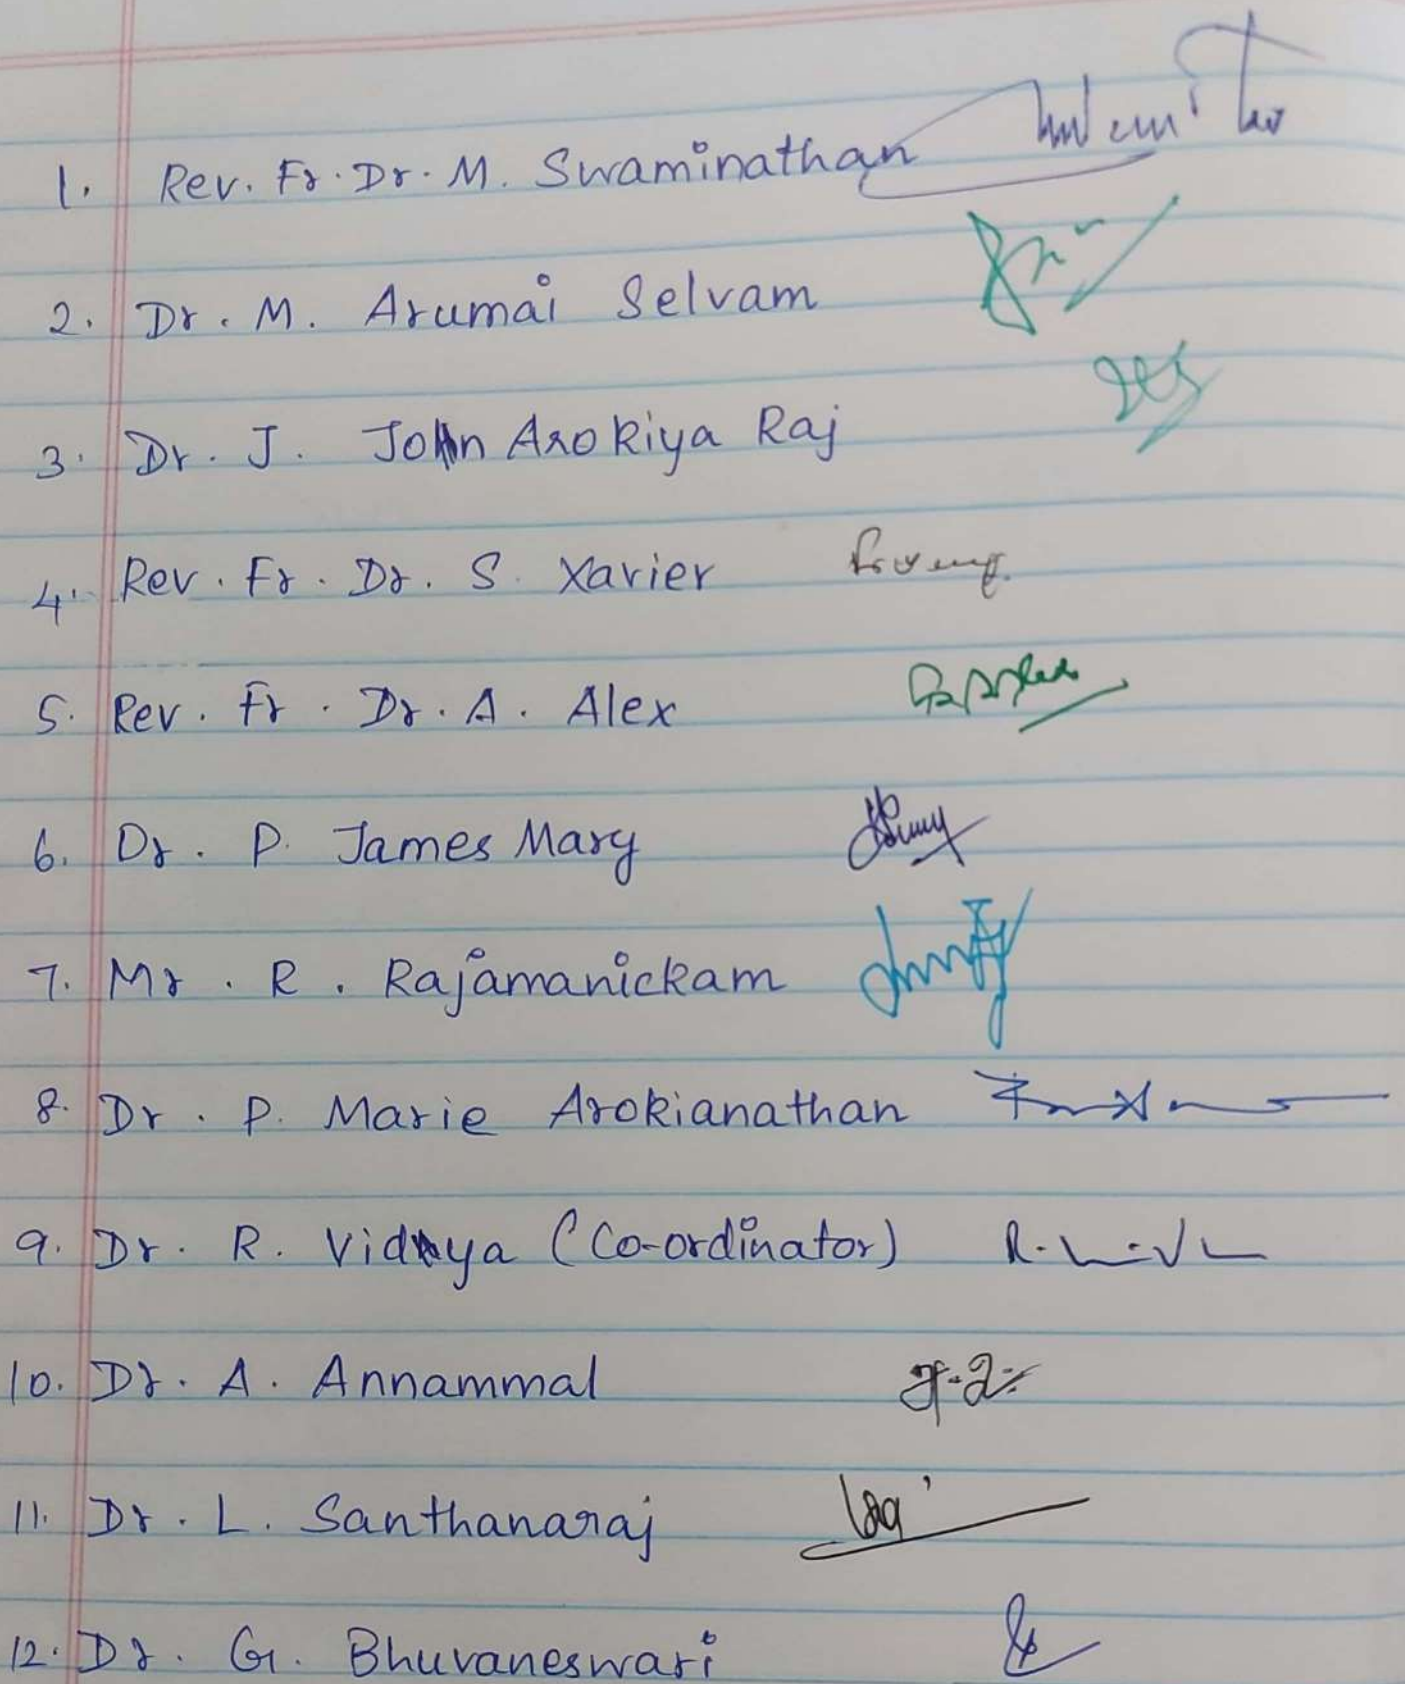 1. Rev. Fr. Dr. M. Swaminathan
2. Dr. M. Arumai Selvam
3. Dr. J. John Arokiya Raj
4. Rev. Fr. Dr. S. Xavier
5. Rev. Fr. Dr. A. Alex
6. Dr. P. James Mary
7. Mr. R. Rajamanickam
8. Dr. P. Marie Arokianathan
9. Dr. R. Vidya (Co-ordinator)
10. Dr. A. Annammal
11. Dr. L. Santhanaraj
12. Dr. G. Bhuvaneswari